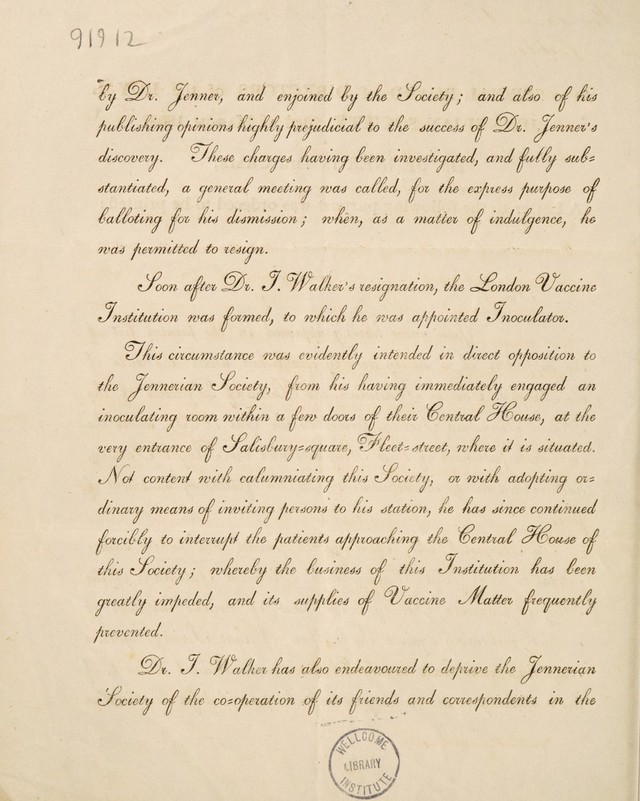 91912
by Dr. Jenner, and enjoined by the Society; and also of his
publishing opinions highly prejudicial to the success of Dr. Jenner's
discovery. These charges having been investigated, and fully sub=
stantiated, a general meeting was called, for the express purpose of
balloting for his dismission; when, as a matter of indulgence, he
was permitted to resign.
Soon after Dr. J. Walker's resignation, the London Vaccine
Institution was formed, to which he was appointed Inoculator.
This circumstance was evidently intended in direct opposition to
the Jennerian Society, from his having immediately engaged an
inoculating room within a few doors of their Central House, at the
very entrance of Salisbury=square, Fleet=street, where it is situated.
Not content with calumniating this Society, or with adopting or=
dinary means of inviting persons to his station, he has since continued
forcibly to interrupt the patients approaching the Central House of
this Society; whereby the business of this Institution has been
greatly impeded, and its supplies of Vaccine Matter frequently
prevented.
Dr. J. Walker has also endeavoured to deprive the Jennerian
Society of the co=operation of its friends and correspondents in the
WELLCOME
LIBRARY
INSTITUTE